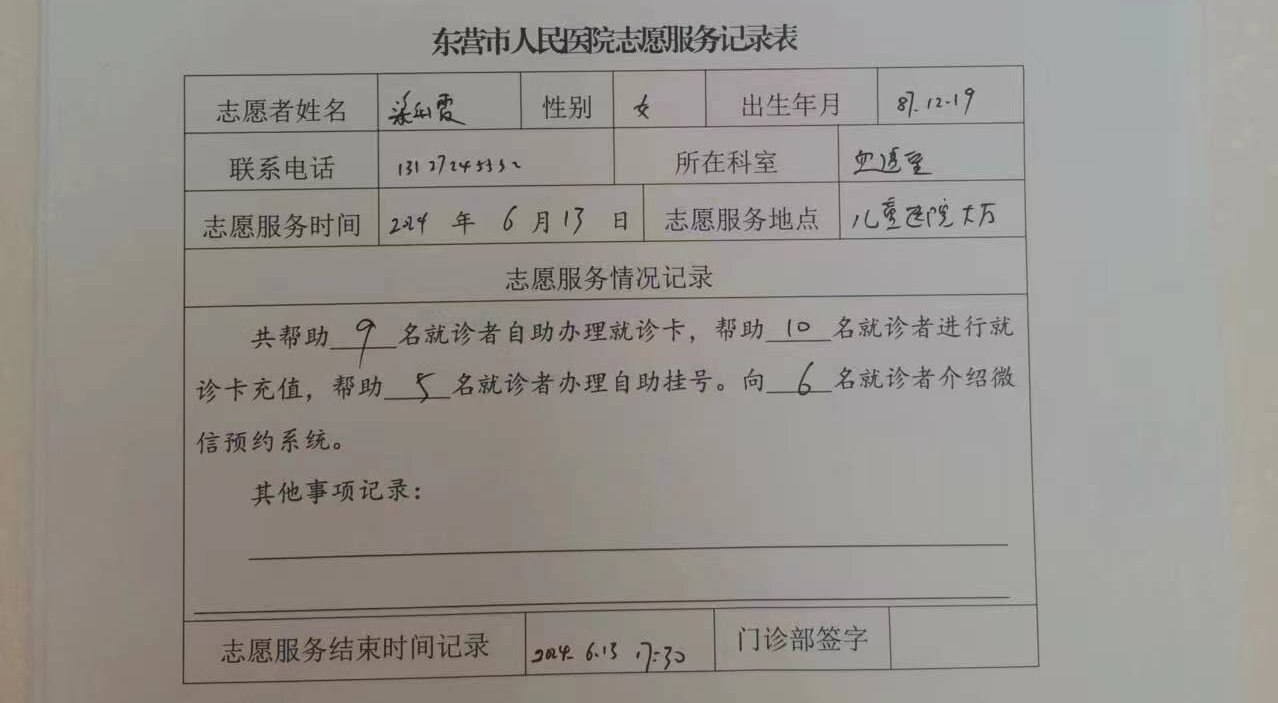 东营市人民医院志愿服务记录表
志愿者姓名 梁 霞 性别 女 出生年月 87.12.19
联系电话 所在科室 血透室
志愿服务时间 2024 年 6 月 13 日 志愿服务地点 儿童医院大厅
志愿服务情况记录
共帮助 9 名就诊者自助办理就诊卡，帮助 10 名就诊者进行就
诊卡充值，帮助 5 名就诊者办理自助挂号。向 6 名就诊者介绍微
信预约系统。
其他事项记录：
志愿服务结束时间记录 2024.6.13 17:30 门诊部签字